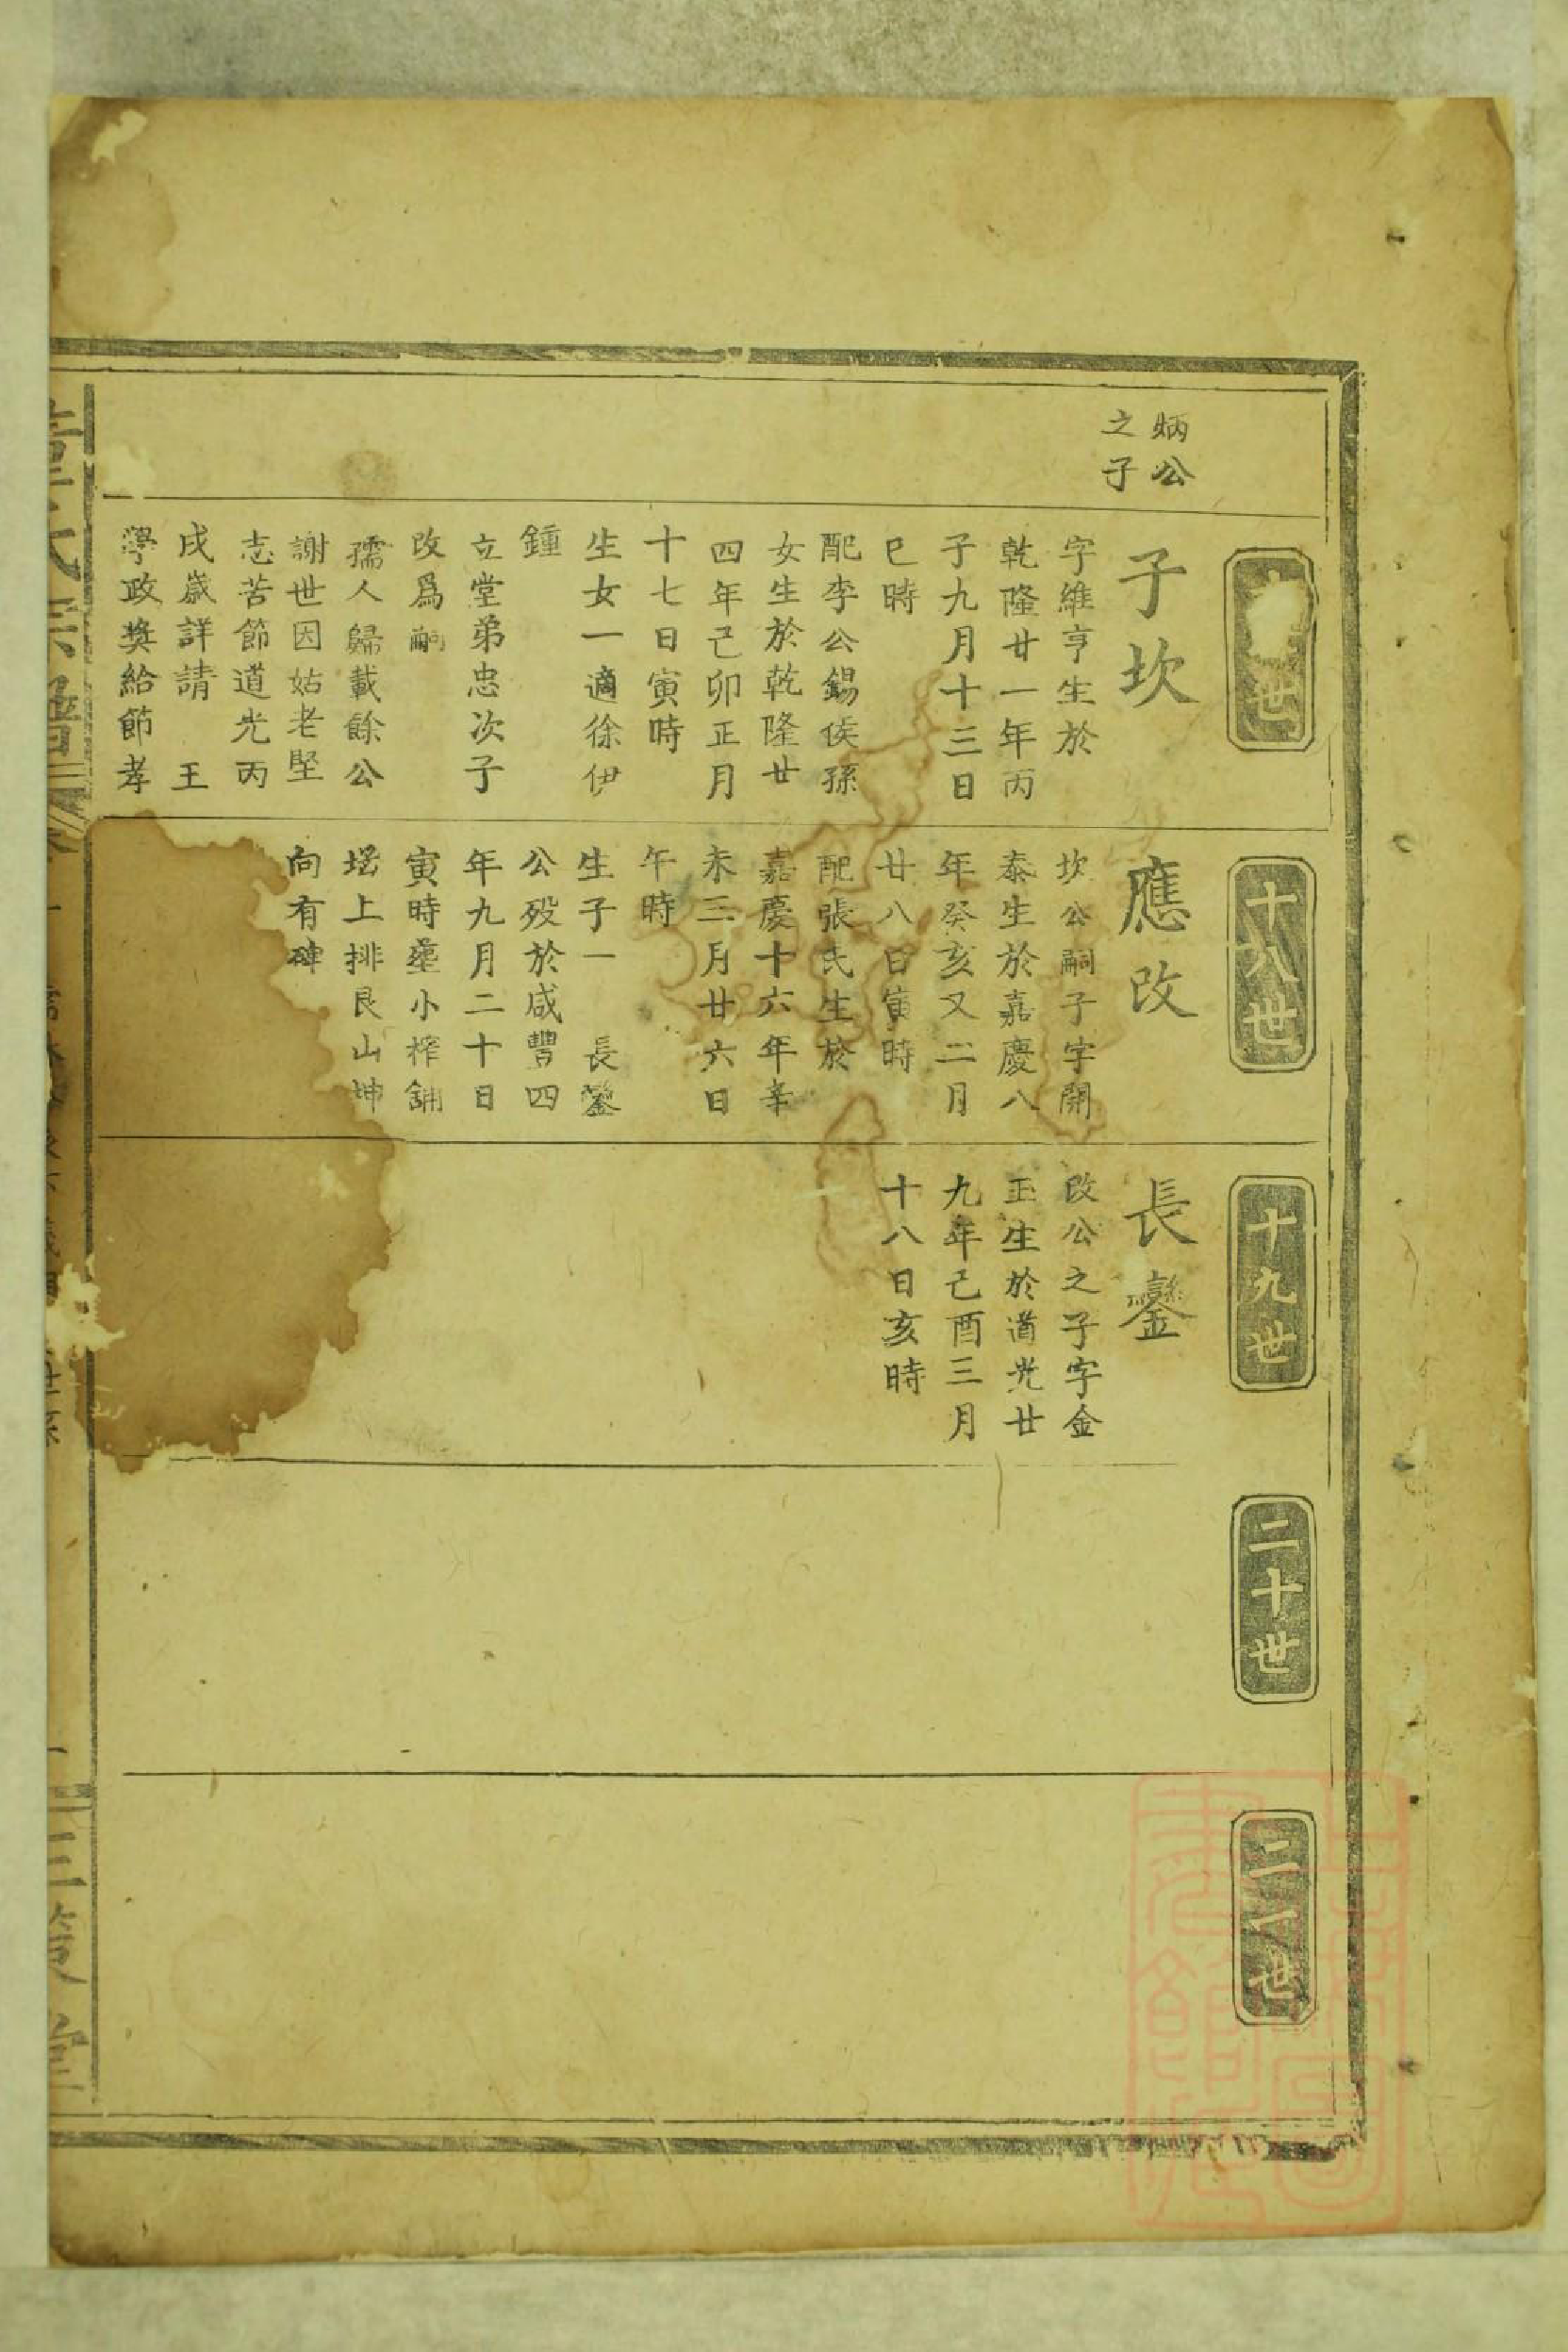 炳公
之子
世
子坎
字維亨生於
乾隆廿一年丙
子九月十三日
巳時
配李公錫侯孫
女生於乾隆廿
四年己卯正月
十七日寅時
生女一適徐伊
鍾
立堂弟忠次子
改爲嗣
孺人歸載餘公
謝世因姑老堅
志苦節道光丙
戌歲詳請 王
學政奬給節孝
十八世
應改
坎公嗣子字開
泰生於嘉慶八
年癸亥又二月
廿八日寅時
配張氏生於
嘉慶十六年辛
未三月廿六日
午時
生子一 長鑾
公歿於咸豐四
年九月二十日
寅時塟小榨舖
塆上排艮山坤
向有碑
十九世
長鑾
改公之子字金
正生於道光廿
九年己酉三月
十八日亥時
二十世
二一世